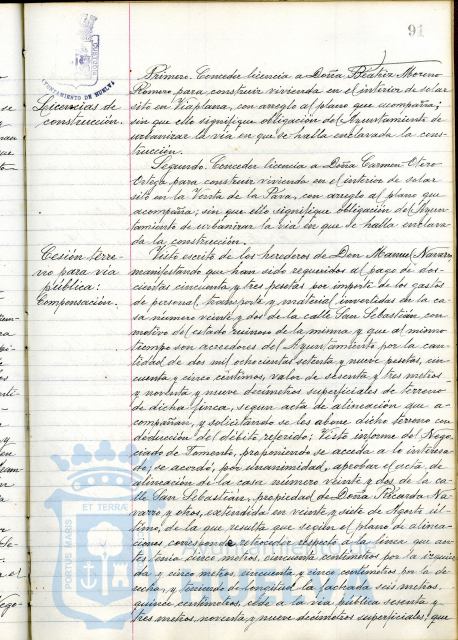 91
AYUNTAMIENTO DE HUELVA
Licencias de
construcción.
Primero. Conceder licencia a Doña Beatriz Moreno
Romero para construir vivienda en el interior de solar
sito en Viaplana, con arreglo al plano que acompaña;
sin que ello signifique obligación del Ayuntamiento de
urbanizar la vía en que se halla enclavada la cons-
trucción.
Segundo. Conceder licencia a Doña Carmen Otero
Ortega para construir vivienda en el interior de solar
sito en la Venta de la Pava, con arreglo al plano que
acompaña; sin que ello signifique obligación del Ayun-
tamiento de urbanizar la vía en que se halla enclava-
da la construcción.
Cesión terre-
no para vía
pública:
Compensación.
Visto escrito de los herederos de Don Manuel Navarro
manifestando que han sido requeridos al pago de dos-
cientas cincuenta y tres pesetas por importe de los gastos
de personal, transporte y material invertidos de la ca-
sa número veinte y dos de la calle San Sebastián con
motivo del estado ruinoso de la misma y que al mismo
tiempo son acreedores del Ayuntamiento por la can-
tidad de dos mil ochocientas setenta y nueve pesetas, cin-
cuenta y cinco céntimos, valor de sesenta y tres metros
y noventa y nueve decímetros superficiales de terreno
de dicha finca, según acta de alineación que a-
compañan, y solicitando se les abone dicho terreno con
deducción del débito referido; Visto informe del Nego-
ciado de Fomento, proponiendo se acceda a lo interesa-
do, se acordó, por unanimidad, aprobar el acta de
alineación de la casa número veinte y dos de la ca-
lle San Sebastián, propiedad de Doña Ricarda Na-
varro y otros, extendida en veinte y siete de Agosto úl-
timo, de la que resulta que según el plano de alinea-
ciones corresponde retroceder respecto a la línea que an-
tes tenía cinco metros, cincuenta centímetros por la izquier-
da y cinco metros, cincuenta y cinco centímetros por la de-
recha, y teniendo de longitud la fachada seis metros
quince centímetros, cede a la vía pública sesenta y
tres metros, noventa y nueve decímetros superficiales, que
PORTUS MARIS ET TERRAE